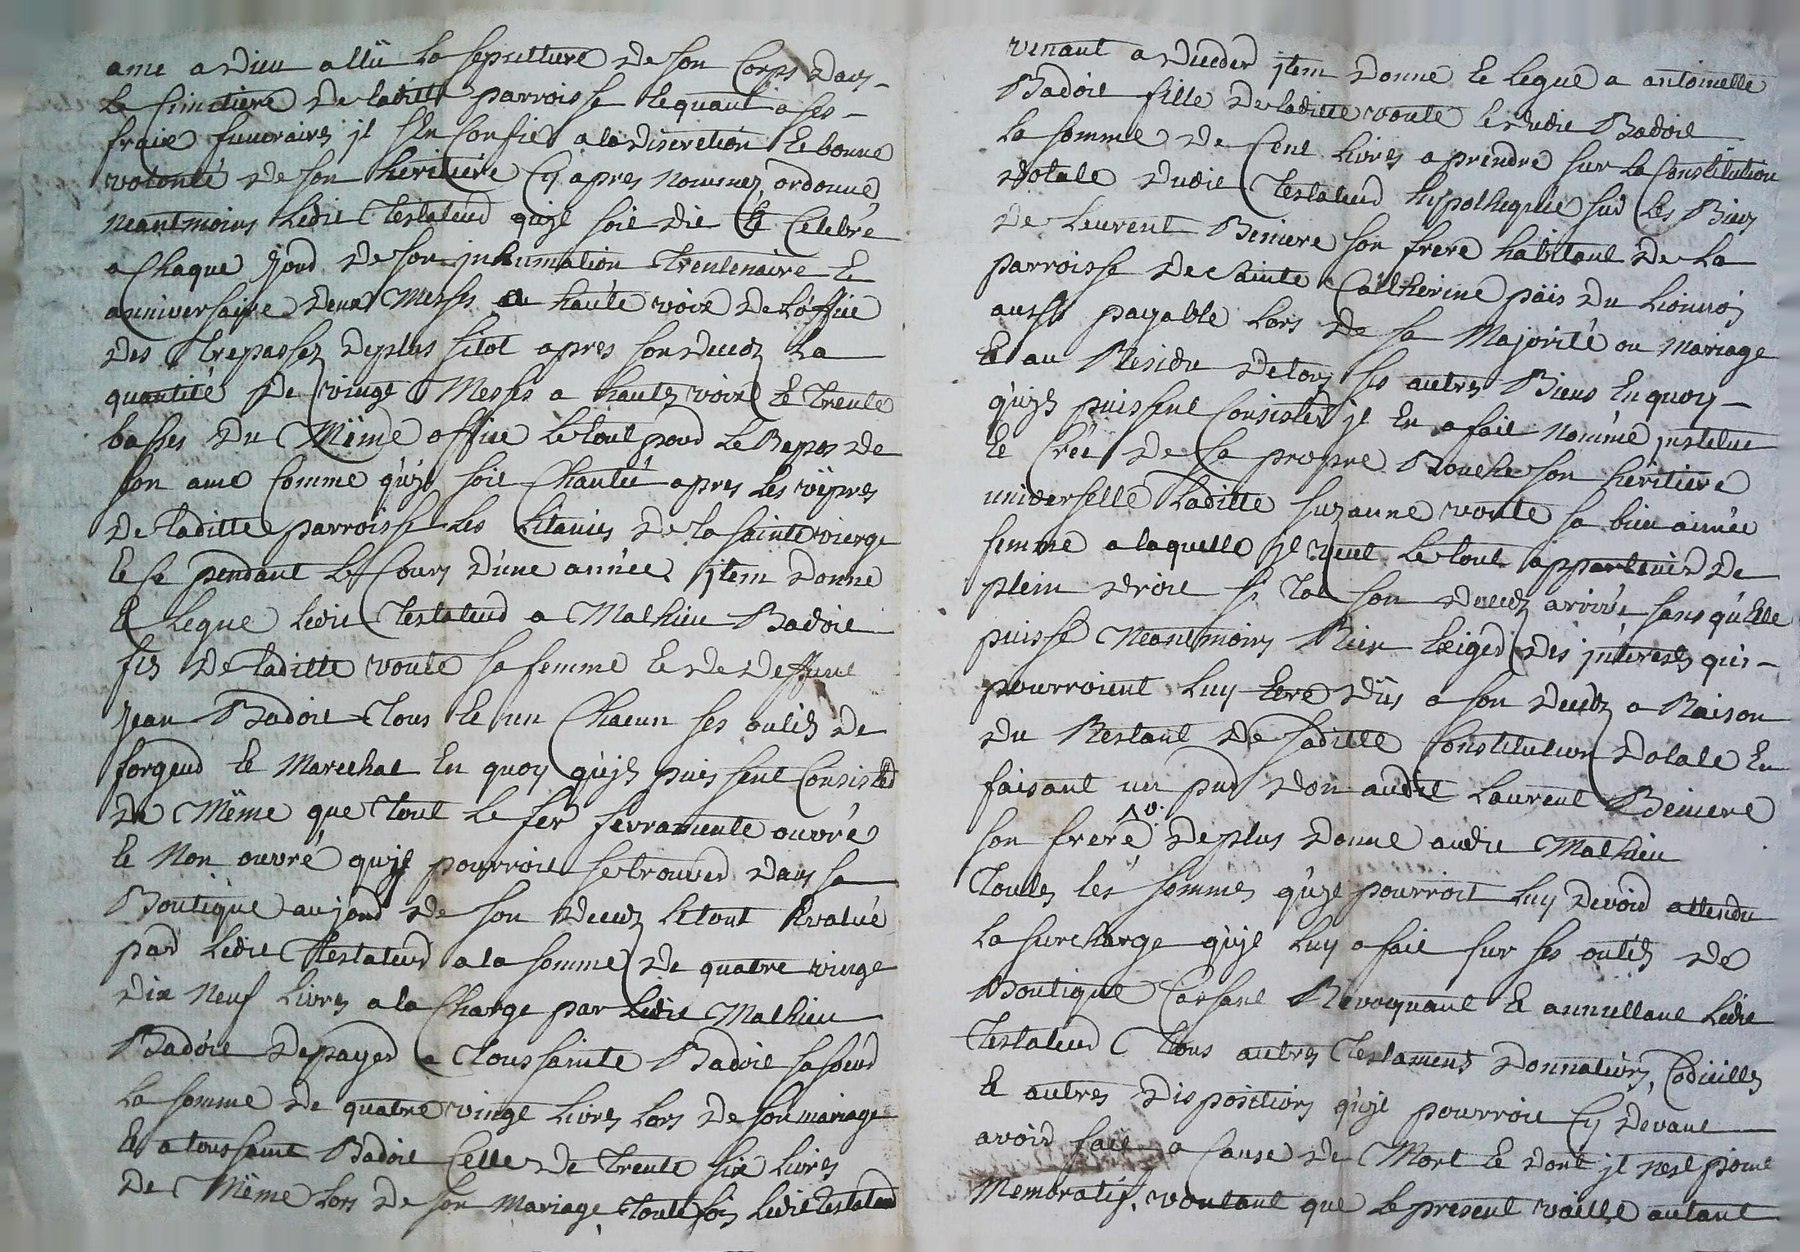 ame a Dieu allû La sepulture de son Corps dans
Le Cimetiere de laditte parroisse Lequant a ses
fraix funeraires jl sEn Confie a la discretion Et bonne
volonté de son heritiere Cy apres nommez, ordonne
neantmoins Ledit Testateur qu'jl soit dit Et Celebré
a Chaque jour de son jnhumation Trentenaire Et
anniversaire deux Messes a haute voix de L'office
des Trepassez deplus sitot apres son deceds La
quantité de vingt Messes a hautes voix Et trente
basses du Même office Le tout pour Le Repos de
son ame Comme qu'jl soit Chanté apres Les vêpres
de laditte parroisse Les Litanies de la sainte vierge
Et ce pendant Le Cours d'une année, jtem donne
Et Legue Ledit Testateur a Mathieu Badoit
fils de laditte voute sa femme Et de deffunt
jean Badoit Tous Et un Chacun ses outils de
forgeur Et Marechal En quoy qu'jls puissent Consister
de Même que Tout Le fer ferramente ouvré
Et Non ouvré qu'jl pourroit se trouver dans sa
Boutique au jour de son deceds Le tout Evalué
par Ledit Testateur a la somme de quatre vingt
dix neuf Livres a la Charge par Ledit Mathieu
Badoit de payer a Toussainte Badoit sa soeur
La somme de quatre vingt Livres Lors de son mariage
Et a toussaint Badoit Celle de trente six Livres
de Même Lors de son Mariage, toutefois Ledit testateur
venant a deceder jtem donne Et Legue a antoinette
Badoit fille de laditte voute Et dudit Badoit
La somme de Cent Livres a prendre sur La Constitution
dotale dudit Testateur hipothequée sur Les Biens
de Leurent Beniere son frere habitant de La
parroisse de Sainte Catherine païs du Lionnoj
aussy payable Lors de sa Majorité ou Mariage
Et au Residu de tous ses autres Biens En quoy
qu'jls puissent Consister jl En a fait Nommé jnstitué
Et Créé de sa propre Bouche son heritiere
universelle Laditte suzanne voute sa bien aimée
femme a laquelle jl veut Le tout appartenir de
plein droit si Tot son deceds arrivé sans qu'Elle
puisse Neantmoins Rien Exiger des jnterests qui
pourroient Luy Etre dûs a son deceds a Raison
du Restant de sa ditte Constitution dotale En
faisant un pur don audit Laurent Beniere
son frere deplus donne audit Mathieu
Toutes les sommes qu'jl pourroit Luy devoir attendu
La surcharge qu'jl Luy a fait sur ses outils de
Boutique Cassant Revoquant Et annullant Ledit
Testateur Tous autres Testaments donnations, Codicilles
Et autres dispositions qu'jl pourroit Cy devant
avoir fait a Cause de Mort Et dont jl nest point
Memoratif, voulant que Le present vaille autant